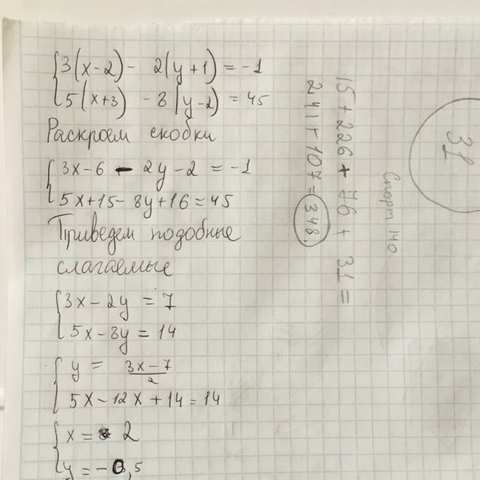 3(x-2) - 2(y+1) = -1
5(x+3) - 8(y-2) = 45
Раскроем скобки
3x-6 - 2y-2 = -1
5x+15-8y+16=45
Приведем подобные
слагаемые
3x-2y = 7
5x-8y = 14
y = 3x-7/2
5x-12x+14=14
x= 2
y=-0,5
15+226+76+31=
241+107=348
Спорт 140
31